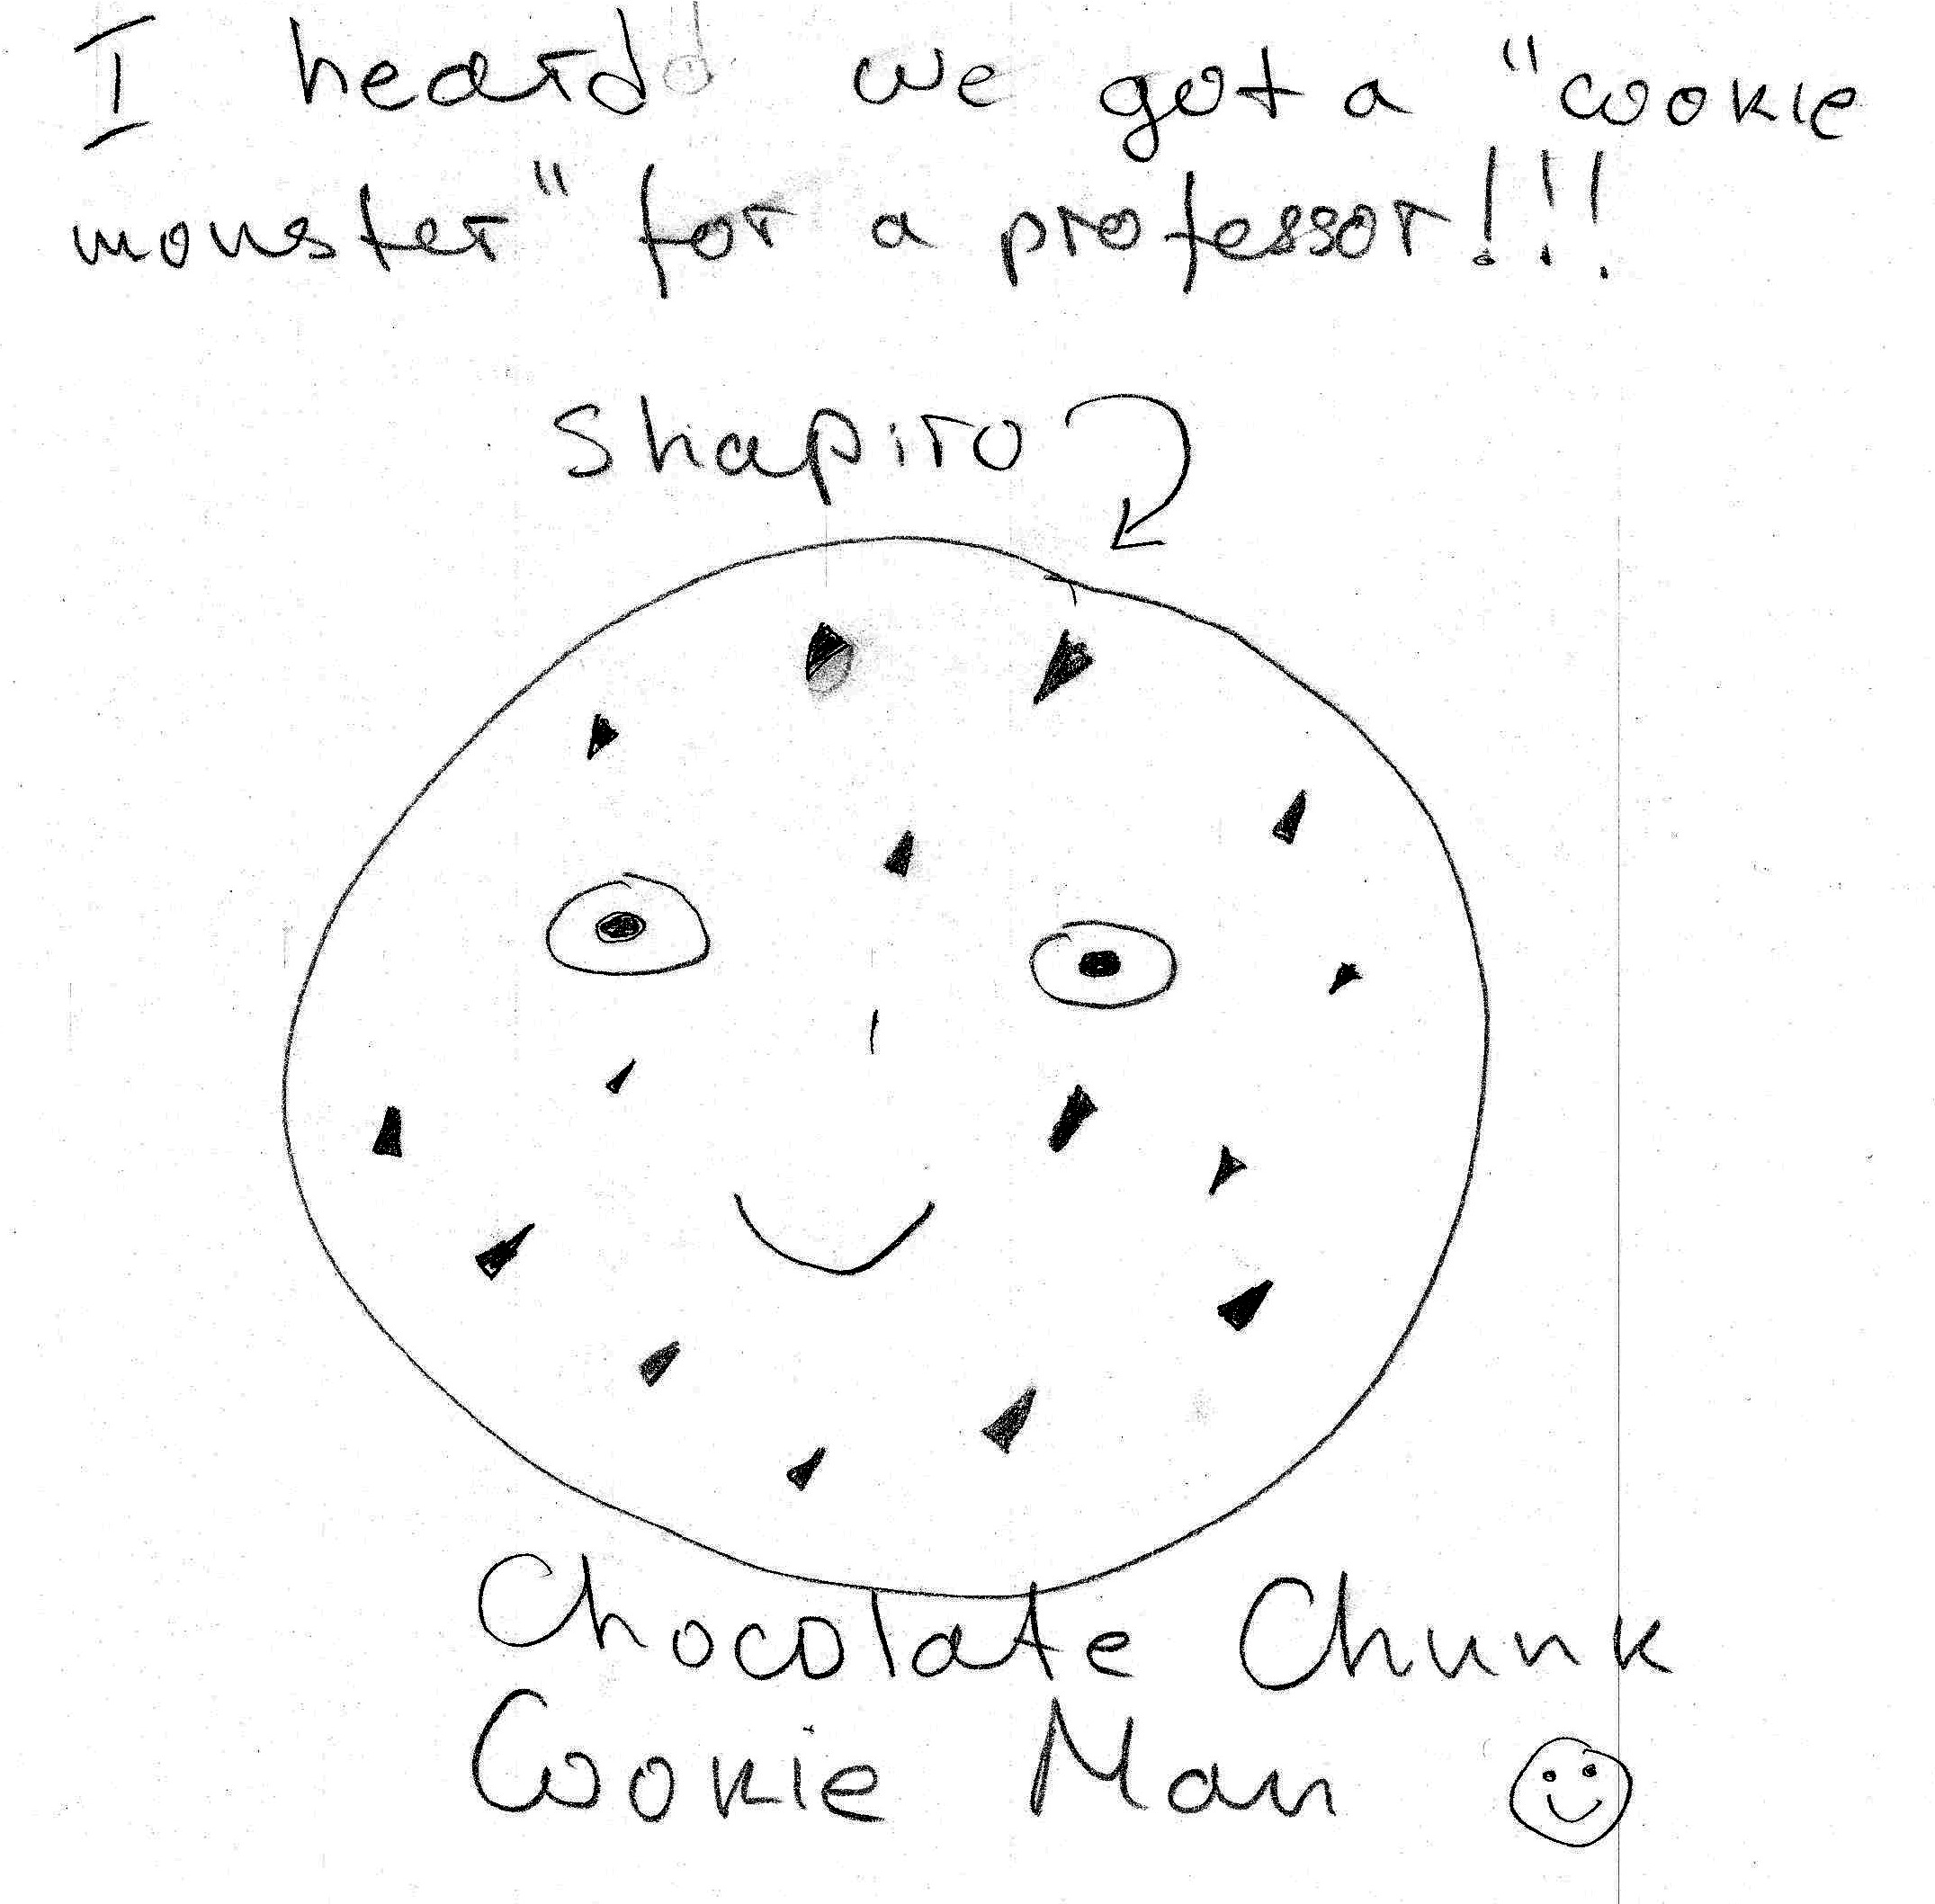 I heard we got a "cookie
monster" for a professor!!!
Shapiro
Chocolate Chunk
Cookie Man